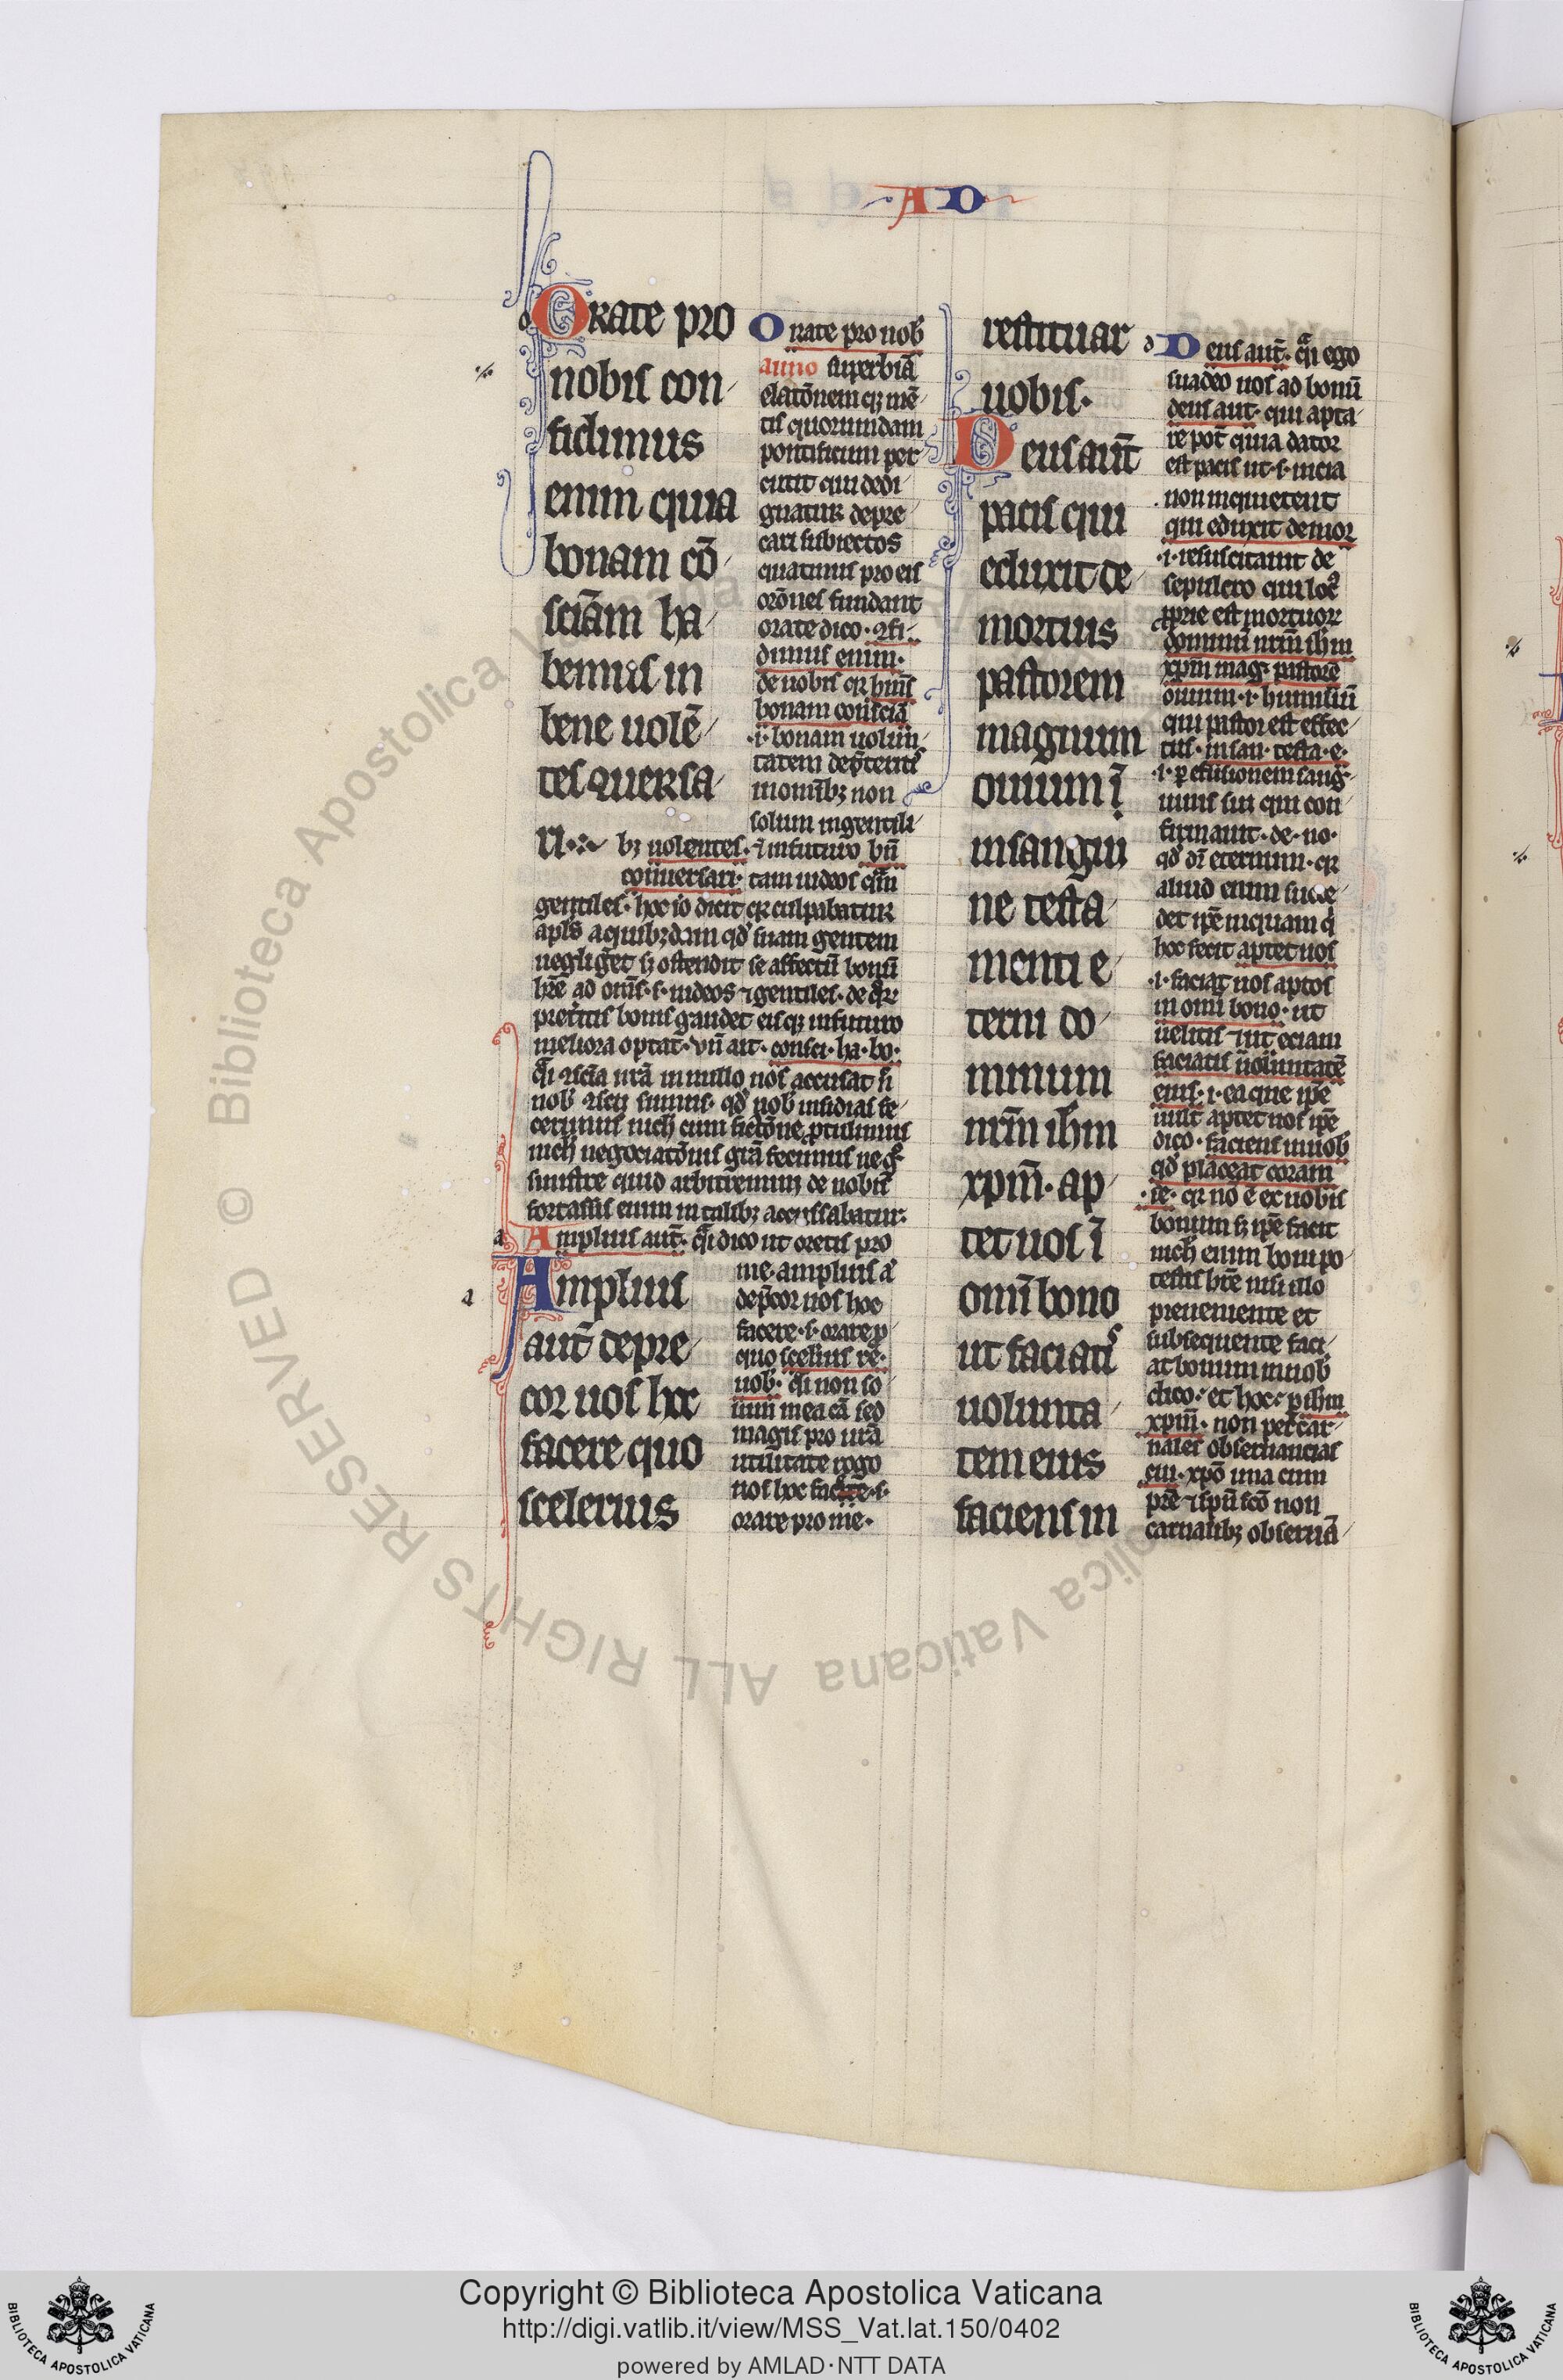 A D
Orate pro
nobis con
fidimus
enim quia
bonam cō
sciām ha
bemus in
bene uolē
tes ꝯuersa
ri.
Orate pro nob
anno superbiā
elatōnem qȝ mē
tis quorumdam
pontificum per
cutit qui dedi
gnatur depre
cari subiectos
quatinus pro eis
orōnes fundant
orate dico · ꝯfi
dimus enim ·
de uobis qr hīns
bonam consciā
·i· bonam uolun
tatem
monibȝ non
solum in gentili
bȝ uolentes · ⁊ in futuro bn̄
conuersari · tam iudeos qm̄
gentiles · hoc io dicit qr culpabatur
apls a quibȝdam qd suam gentem
negligeret sȝ ostendit se affectū bonū
hr̄e ad om̄s · s · iudeos ⁊ gentiles · de
preteritis bonis gaudet eis qȝ in futuro
meliora optat · vn̄ ait · consci · ha · bo ·
ꝯscīa nrā in nullo nos accusat si
nob ꝯscii sumus · qd uob insidias fe
cerimus nich cum fictōne ꝓtulimus
nich negociatōnis grā fecimus
sinistre quid arbitremini de uobis
fortassis enim in talibȝ accussabatur
Amplius aut · dico ut oretis pro
me · amplius
deprecor uos hoc
facere · s · orare ꝓ
quo scelius re ·
uob · non so
lum mea cā sed
magis pro urā
utilitate rogo
uos hoc facere · s ·
orare pro me ·
Amplius
aut̄ depre
cor uos hoc
facere quo
scelerius
restituar
uobis ·
Deus aut̄
pacis qui
eduxit de
mortuis
pastorem
magnum
ouium ī
in sangui
ne testa
menti e
terni do
minum
nrm̄ ihm
xpm̄ · ap
tet uos ī
omī bono
ut faciatis
uolunta
tem eius
faciens in
Deus aut̄ · ego
suadeo uos ad bonū
deus aut · qui apta
re pot̄ quia dator
est pacis ut · s · uicia
non inquietent
qui eduxit de mor
·i· resuscitauit de
sepulcro qui
ꝓprie est mortuor
dominū nrm̄ ihm
xpm mag · pastorē
ouium · i · humiliū
qui pastor est effec
tus · in san · testa · e ·
·i· ꝑ effusionem sang
uinis sui qui con
firmauit · de · no ·
qd dr̄ eternum · qr
aliud enim succe
det ipē inquam q
hoc fecit aptet uos
·i· faciat uos aptos
in omi bono · ut
uelitis ⁊ ut eciam
faciatis uoluntatē
eius · i · ea que ipē
uult aptet uos ipē
dico · faciens in uob
qd placeat coram
se · qr nō ē ex uobis
bonum sȝ ipē facit
nich enim boni po
testis hr̄e nisi illo
preueniente et
subsequente faci
at bonum in uob
dico · et hoc · ꝑ ihm
xpm̄ · non per car
nales obseruancias
cui · xpō una cum
prē ⁊ spū scō non
carnalibȝ obseruā
Copyright © Biblioteca Apostolica Vaticana
http://digi.vatlib.it/view/MSS_Vat.lat.150/0402
powered by AMLAD·NTT DATA
BIBLIOTECA APOSTOLICA VATICANA
BIBLIOTECA APOSTOLICA VATICANA
© Biblioteca Apostolica Vaticana ALL RIGHTS RESERVED